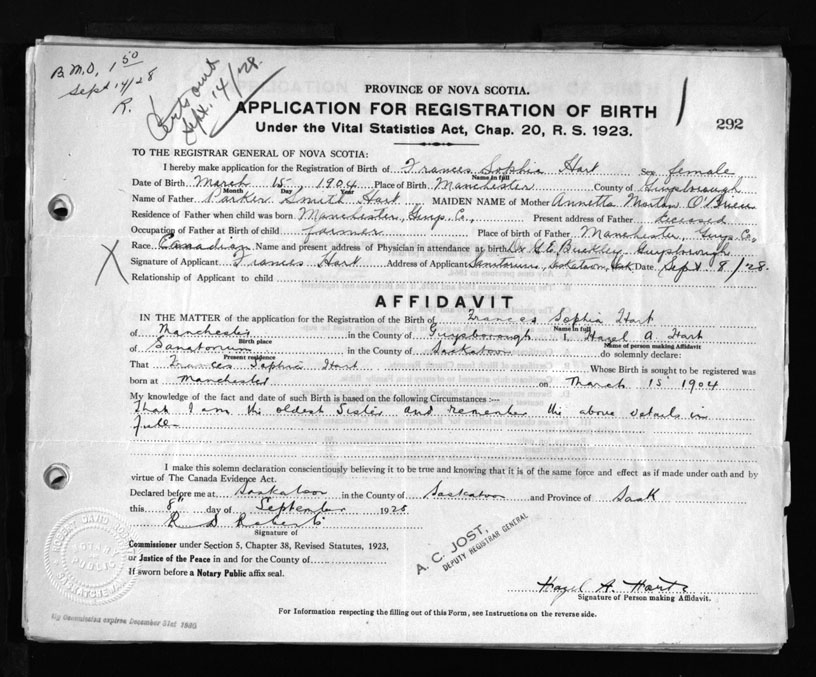 B.M.D. 1.50
Sept 14/28
R.
Sept. 14/28.
PROVINCE OF NOVA SCOTIA.
APPLICATION FOR REGISTRATION OF BIRTH
Under the Vital Statistics Act, Chap. 20, R. S. 1923.
292
TO THE REGISTRAR GENERAL OF NOVA SCOTIA:
I hereby make application for the Registration of Birth of Frances Sophia Hart Sex female
Name in full
Date of Birth March 15 1904 Place of Birth Manchester County of Guysborough
Month Day Year
Name of Father Parker Smith Hart MAIDEN NAME of Mother Annetta Morton O'Brien
Residence of Father when child was born Manchester, Guys. Co., Present address of Father Deceased
Occupation of Father at Birth of child farmer Place of birth of Father Manchester, Guys. Co.,
Race Canadian Name and present address of Physician in attendance at birth Dr G.E. Buckley, Guysborough
Signature of Applicant Frances Hart Address of Applicant Sanitorium, Saskatoon, Sask Date Sept. 8/28.
Relationship of Applicant to child
AFFIDAVIT
IN THE MATTER of the application for the Registration of the Birth of Frances Sophia Hart
Name in full
of Manchester in the County of Guysborough I, Hazel A Hart
Birth place Name of person making Affidavit
of Sanatorium in the County of Saskatoon do solemnly declare:
Present residence
That Frances Sophia Hart Whose Birth is sought to be registered was
born at Manchester on March 15 1904
My knowledge of the fact and date of such Birth is based on the following Circumstances :—
That I am the oldest Sister and remember the above details in
full
I make this solemn declaration conscientiously believing it to be true and knowing that it is of the same force and effect as if made under oath and by
virtue of The Canada Evidence Act.
Declared before me at Saskatoon in the County of Saskatoon and Province of Sask
this 8th day of September 1928
R D Roberts
Signature of
Commissioner under Section 5, Chapter 38, Revised Statutes, 1923,
or Justice of the Peace in and for the County of
If sworn before a Notary Public affix seal.
A. C. JOST,
DEPUTY REGISTRAR GENERAL
Hazel A. Hart
Signature of Person making Affidavit.
For Information respecting the filling out of this Form, see Instructions on the reverse side.
NOTARY PUBLIC
My Commission expires December 31st 1930